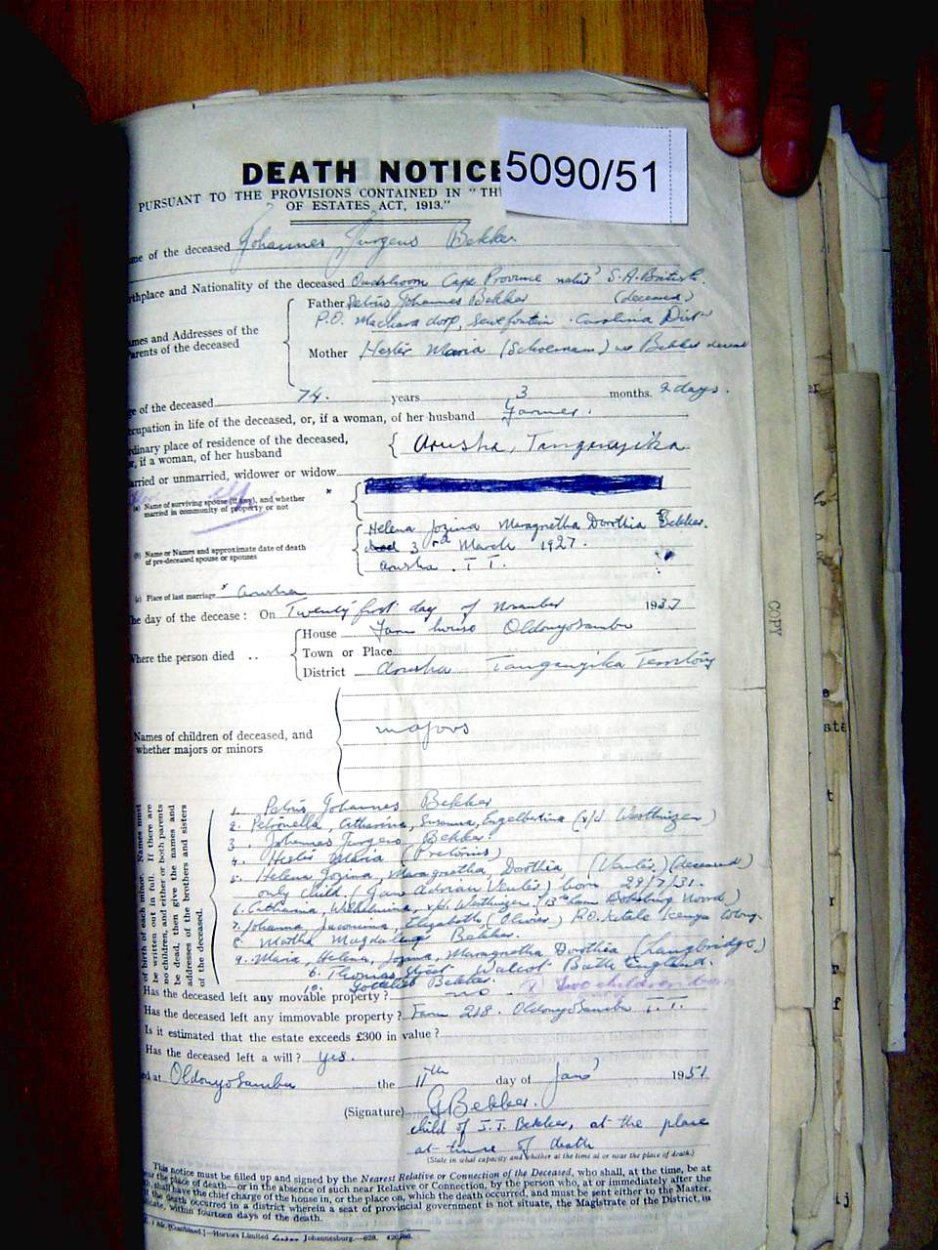 DEATH NOTICE
5090/51
PURSUANT TO THE PROVISIONS CONTAINED IN "TH
OF ESTATES ACT, 1913."
me of the deceased Johannes Jurgens Bekker
rthplace and Nationality of the deceased Oudshoorn Cape Province S.A. British
ames and Addresses of the
arents of the deceased
Father Petrus Johannes Bekker (deceased)
P.O. Machadadorp, Carolina Dist
Mother Hester Maria (Schoeman) Bekker
ge of the deceased 74. years 3 months. 2 days.
ccupation in life of the deceased, or, if a woman, of her husband Farmer.
rdinary place of residence of the deceased,
r, if a woman, of her husband
Arusha, Tanganyika
arried or unmarried, widower or widow
(a) Name of surviving spouse (if any), and whether
married in community of property or not
(b) Name or Names and approximate date of death
of pre-deceased spouse or spouses
Helena Jozina Maragnetha Dorthia Bekker.
3rd March 1927.
Arusha. T.T.
(c) Place of last marriage Arusha
he day of the decease: On Twenty first day of November 1937
Where the person died ..
House Farm house Oldonyosambu
Town or Place
District Arusha Tanganyika Territory
Names of children of deceased, and
whether majors or minors
majors
of birth of each minor. Names must
be written out in full. If there are
no children, and either or both parents
be dead, then give the names and
addresses of the brothers and sisters
of the deceased.
1. Petrus Johannes Bekker
2. Petronella, Catharina, Susanna, Engelbertina (v/d Westhuizen)
3. Johannes Jurgens Bekker.
4. Hester Maria (Pretorius)
5. Helena Jozina, Maragnetha, Dorthia, (Venter) (deceased)
only child (Jan Adrian Venter) born 29/7/31.
6. Catharina, Wilhelmina, v/d Westhuizen
7. Johanna, Elizabeth (Olivier) P.O. Kitale Kenya Colony
8. Martha Magdalena Bekker.
9. Maria, Helena, Jozina, Maragnetha Dorothia (Langbridge)
6. Thomas Street Walcot Bath England.
10. Bekker.
Has the deceased left any movable property? no two children
Has the deceased left any immovable property? Farm 218. Oldonyosambu T.T.
Is it estimated that the estate exceeds £300 in value?
Has the deceased left a will? Yes.
ed at Oldonyosambu the 11th day of Jan 1951
(Signature) G Bekker.
child of J.J. Bekker, at the place
at time of death
(State in what capacity and whether at the time at or near the place of death.)
This notice must be filled up and signed by the Nearest Relative or Connection of the Deceased, who shall, at the time, be at
the place of death—or in the absence of such near Relative or Connection, by the person who, at or immediately after the
shall have the chief charge of the house in, or the place on, which the death occurred, and must be sent either to the Master,
the death occurred in a district wherein a seat of provincial government is not situate, the Magistrate of the District, in
within fourteen days of the death.
Hortors Limited Johannesburg
COPY